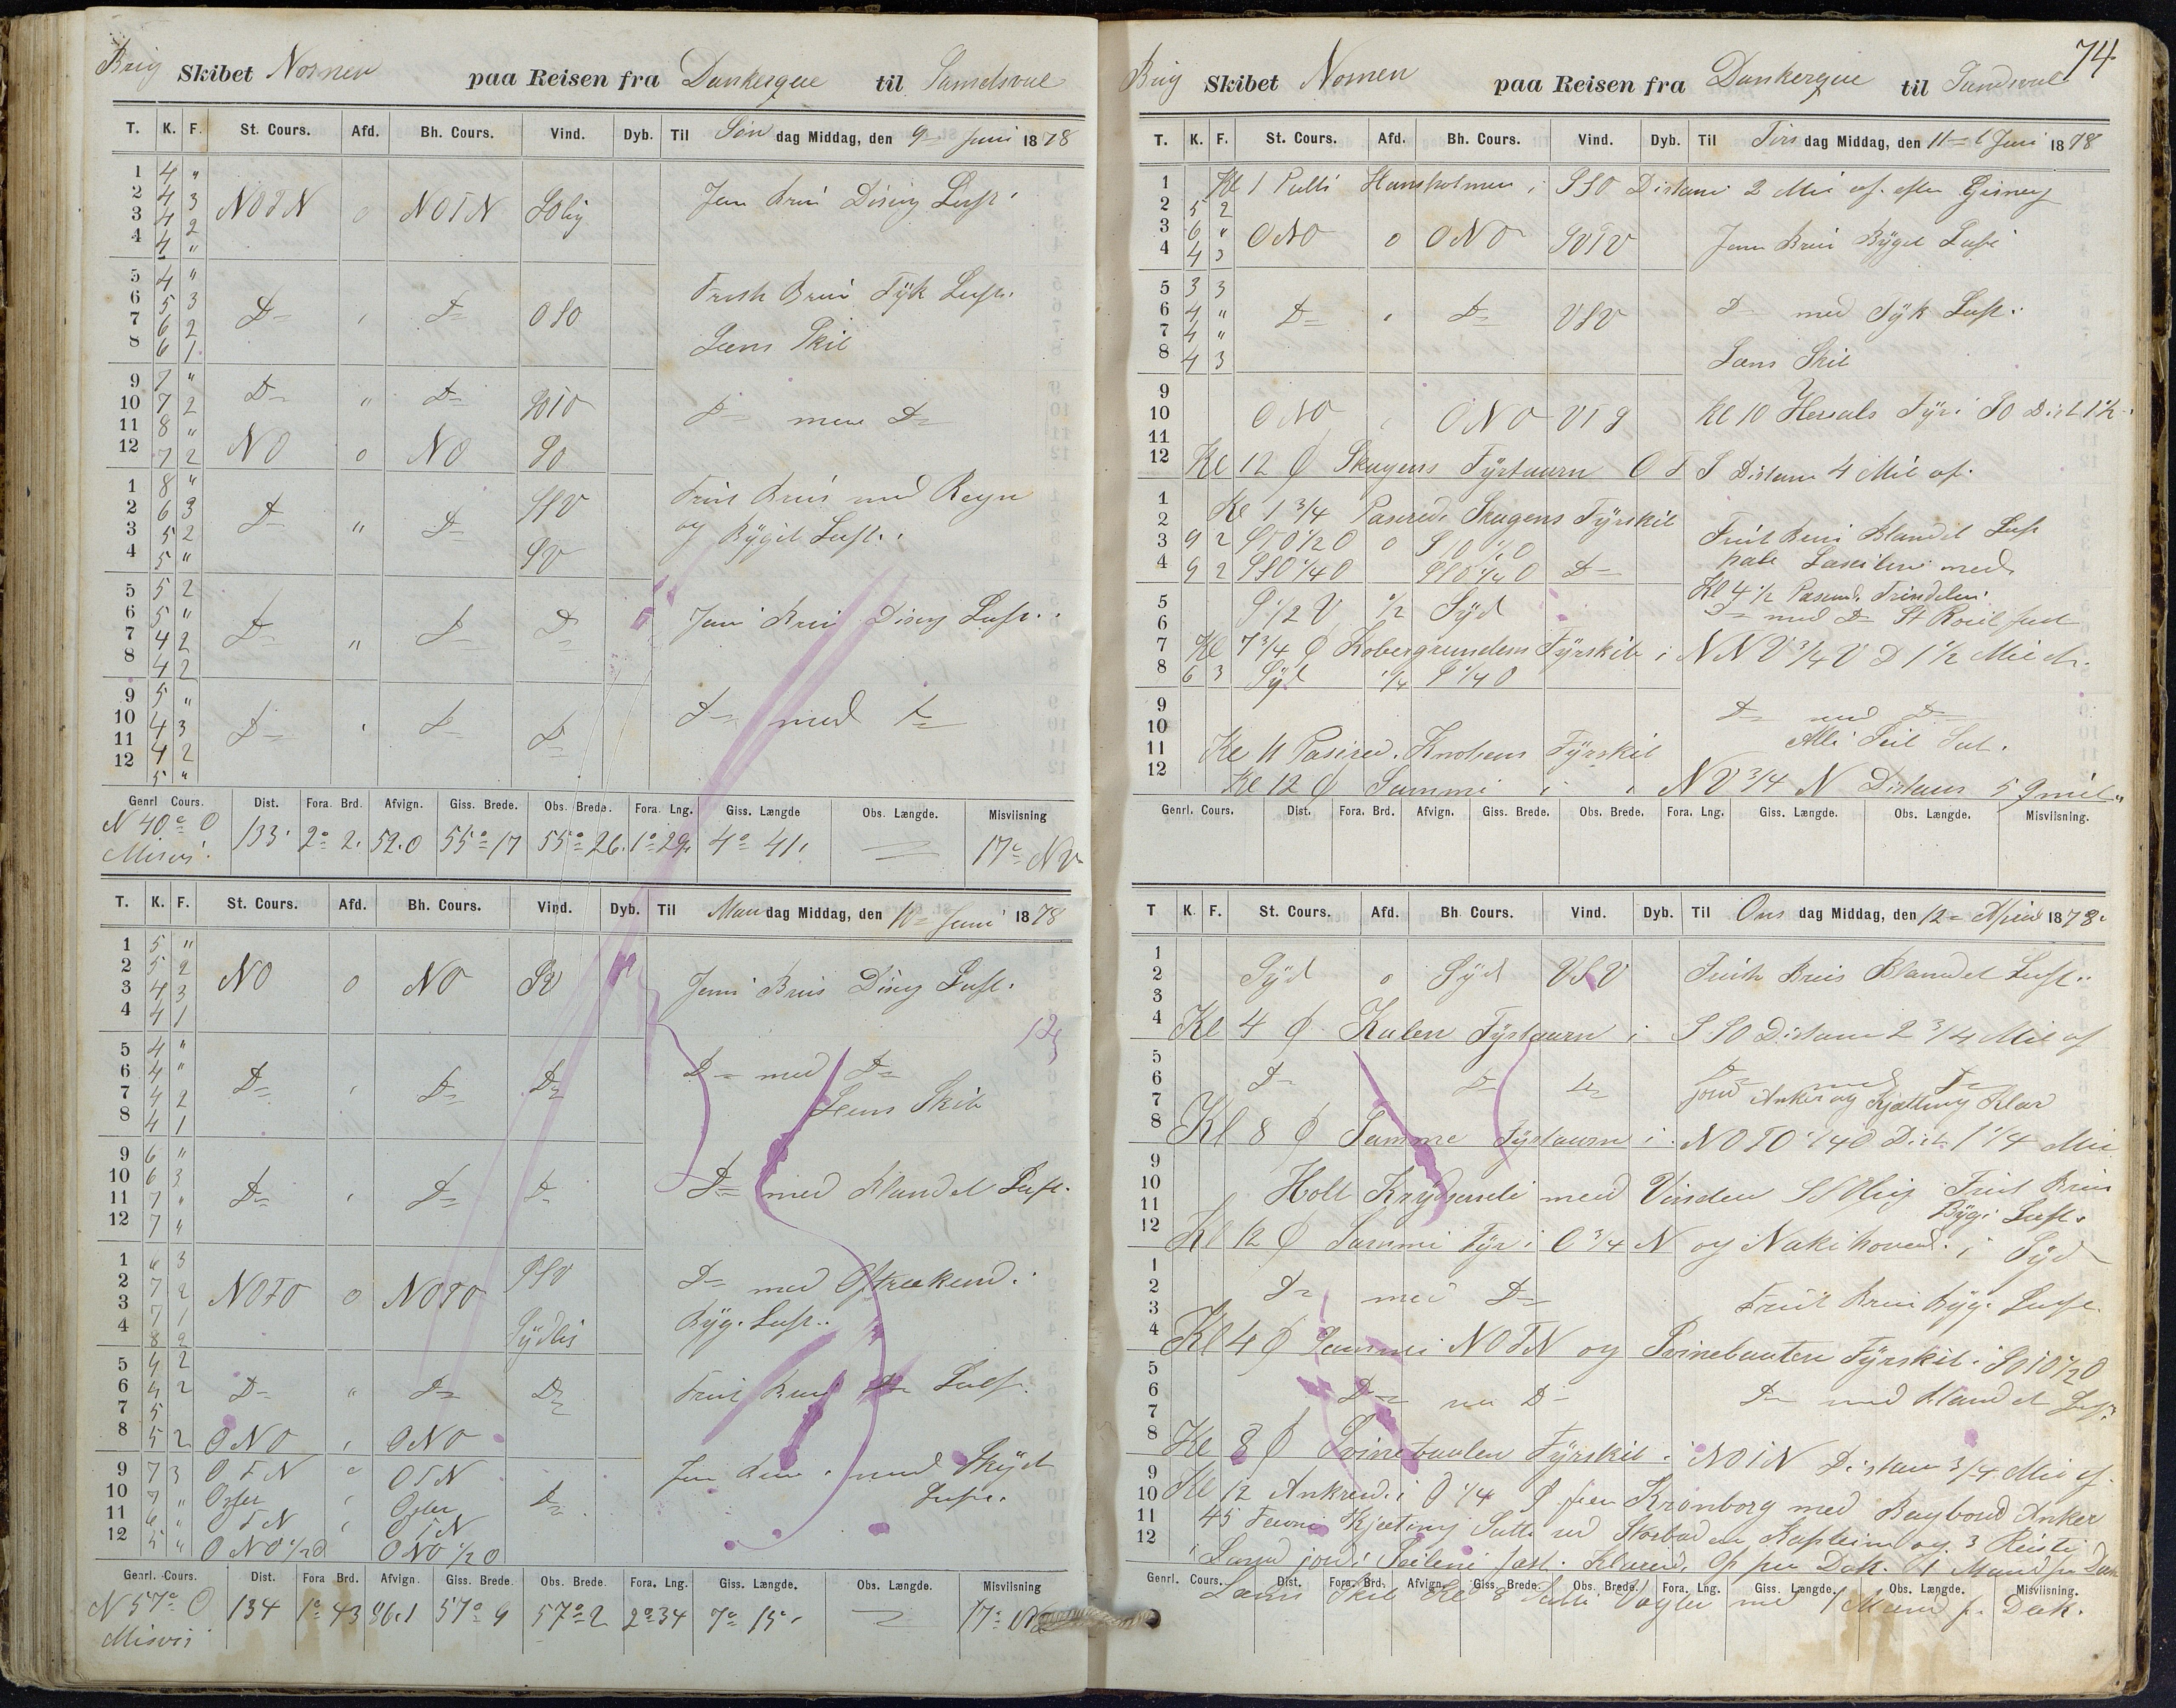 Brig Skibet Nornen paa Reisen fra Dunkerque til Sundsval
T. K. F. St. Cours. Afd. Bh. Cours. Vind. Dyb. Til Søn dag Middag, den 9 Juni 1878
1 4 "
2 4 3 NOTN o NOTN SOlig Jevn Bris Disig Luft
3 4 2
4 4 "
5 4 " Frisk Bris Tyk Luft.
6 5 3 D " D OSO
7 6 2 Læns Skib
8 6 1
9 7 " D " D SOTO
10 7 2 D med D
11 8 "
12 7 2 NO o NO SO
1 8 " SSV Frisk Bris med Regn
2 6 3 D " D og Byget Luft.
3 5 2
4 5 " SV
5 5 2
6 5 " D " D D Jevn Bris Disig Luft.
7 4 2
8 4 2
9 5 "
10 4 3 D " D D D med D
11 4 2
12 5 "
Genrl Cours. Dist. Fora. Brd. Afvign. Giss. Brede. Obs. Brede. Fora. Lng. Giss. Længde Obs. Længde. Misviisning
N 40° O 133 2° 2. 52.0 55° 17 55° 26. 1° 29. 4° 41. 17° NV
Misvis.
T. K. F. St. Cours. Afd. Bh. Cours. Vind. Dyb. Til Man dag Middag, den 10 Juni 1878
1 5 "
2 5 2 NO o NO SV Jevn Bris Disig Luft.
3 4 3
4 4 1
5 4 " D med D
6 4 " D " D D
7 4 2 Læns Skib
8 4 1
9 6 "
10 6 3 D " D D D med Blandet Luft.
11 7 "
12 7 "
1 6 3 SSV
2 7 2 NOTO o NOTO D med
3 7 1 Byg. Luft.
4 8 2 Sydlig
5 4 2
6 4 2 D " D D Frisk Bris D Luft.
7 5
8 5 2 ONO " ONO
9 7 3 OTN " OTN Jevn Bris med Skyet
10 7 " Oster " Oster D Luft.
11 6 " OTN " OTN
12 5 " ONO 1/2 O ONO 1/2 O
Genrl. Cours. Dist. Fora Brd. Afvign. Giss. Brede. Obs. Brede. Fora. Lng. Giss. Længde. Obs. Længde. Misviisning
N 57° O 134 1° 43 86.1 57° 9 57° 2 2° 34 7° 15. 17° NV
Misvis
74
Brig Skibet Nornen paa Reisen fra Dunkerque til Sundsval
T. K. F. St. Cours. Afd. Bh. Cours. Vind. Dyb. Til Tirs dag Middag, den 11 Juni 1878
1 Kl 1 Peilt Hansholmen i SSO Distans 2 Mil af. efter Gisning
2 5 2
3 6 " ONO o ONO SVTV Jevn Bris Byget Luft
4 4 3
5 3 3
6 4 " D " D VSV D med Tyk Luft.
7 4 "
8 4 3 Læns Skib
9
10 ONO " ONO VTS Kl 10 Hirsals Fyr i SO Dist 1 1/2
11
12 Kl 12 P Skagens Fyrtaarn OTS Distans 4 Mil af.
1
2 Kl 1 3/4 Paserede Skagens Fyrskib Frisk Bris Blandet Luft
3 9 2
4 9 2 SSO 1/4 O SSO 1/4 O D
5 S 1/2 V 1/2 Syd Kl 4 1/2 Paserede Trindelen
6 D med D
7 Kl 7 3/4 P Kobergrundens Fyrskib i NNV 3/4 V D 1 1/2 Mil
8 6 3 Syd 1/4 S 1/4 O
9 D med D
10 Alle Seil Sat.
11 Kl 11 Paserede Knobens Fyrskib
12 Kl 12 P Samme i NV 3/4 N Distans
Genrl. Cours. Dist. Fora. Brd. Afvign. Giss. Brede. Obs. Brede. Fora. Lng. Giss. Længde. Obs. Længde. Misviisning.
T K. F. St. Cours. Afd. Bh Cours. Vind. Dyb. Til Ons dag Middag, den 12 1878
1
2 Syd o Syd VSV Frisk Bris Blandet Luft.
3
4 Kl 4 P Kulen Fyrtaarn i SSO Distans 2 3/4 Mil af
5
6 D D D D med D
7 Anker og Kjætting Klar
8 Kl 8 P Samme Fyrtaarn i NOTO 1/4 O Dist 1 1/4 Mil
9
10 Holt Krydsende med Vinden SSOlig Frisk Bris
11 Byg. Luft.
12 Kl 12 P Samme Fyr i O 3/4 N og Nakkehoved i Syd
1
2 D med D
3 Frisk Bris Byg. Luft.
4 Kl 4 P Samme NOTN og Svinebauten Fyrskib i
5
6 D med D D med Blandet Luft
7
8 Kl 8 P Svinebauten Fyrskib i NOTN Distans 3/4 Mil af.
9
10 Kl 12 Ankrede i O 1/4 S fra Kronborg med Bagbord Anker
11 45 Favne Kjæting Satte ud Storbaden Kaptein og 3
12 i Land gjorde Seilene fast. Klarede Op paa Dæk. 1 Mand paa Dæk
Genrl. Cours. Dist. Fora. Brd. Afvign. Giss. Brede. Obs. Brede. Fora. Lng. Giss. Længde. Obs. Længde. Misviisning.
Læns Skib Kl 8 Satte Vagten med 1 Mand p. Dæk.